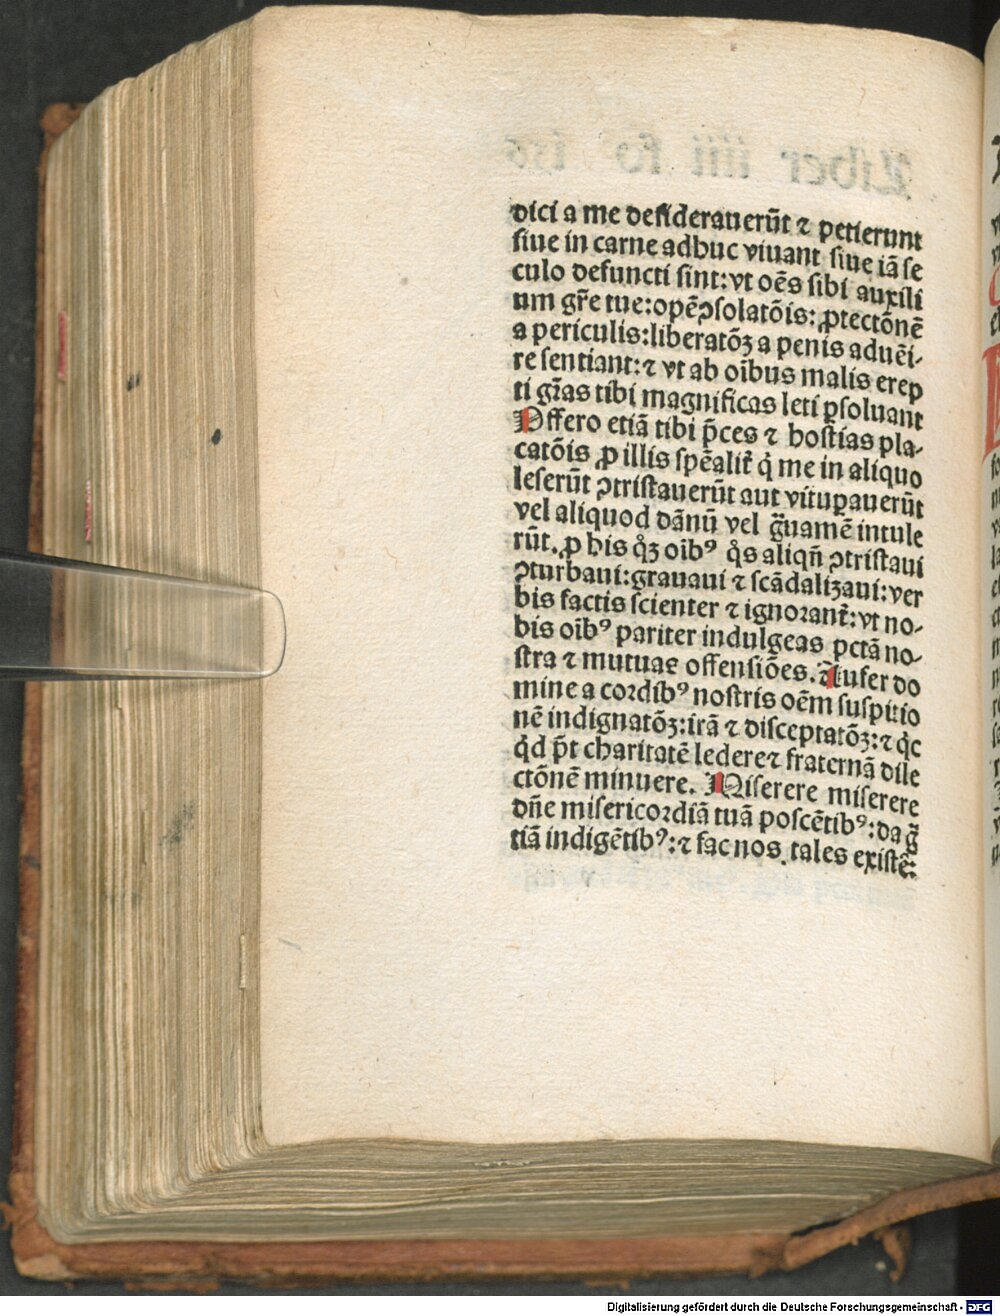 dici a me desiderauerũt ⁊ petierunt
siue in carne adhuc viuant siue iã se
culo defuncti sint: vt oẽs sibi auxili
um gr̃e tue: opẽ ꝯsolatõis: ꝓtectõnẽ
a periculis: liberatõꝫ a penis aduẽi-
re sentiant: ⁊ vt ab oĩbus malis erep
ti gr̃as tibi magnificas leti ꝑsoluant
Offero etiã tibi p̃ces ⁊ hostias pla-
catõis ꝓ illis spẽalit̃ q̇ me in aliquo
leserũt ꝯtristauerũt aut vituꝑauerũt
vel aliquod dãnũ vel g̃uamẽ intule
rũt. ꝓ his q̊ꝫ oĩbꝰ q̊s aliqñ ꝯtristaui
ꝯturbaui: grauaui ⁊ scãdalizaui: ver
bis factis scienter ⁊ ignorant̃: vt no-
bis oĩbꝰ pariter indulgeas pctã no-
stra ⁊ mutuas offensiões. Aufer do
mine a cordibꝰ nostris oẽm suspitio
nẽ indignatõꝫ: irã ⁊ disceptatõꝫ: ⁊ q̇c
q̇d p̃t charitatẽ ledere ⁊ fraternã dile
ctõnẽ minuere. Miserere miserere
dñe misericordiã tuã poscẽtibꝰ: da g̃
tiã indigẽtibꝰ: ⁊ fac nos tales existẽ:
Digitalisierung gefördert durch die Deutsche Forschungsgemeinschaft - DFG